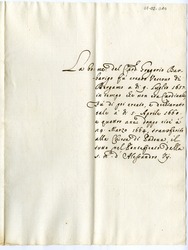 La bo: me: del Card. Gregorio Bar-
barigo fù creato Vescovo di
Bergamo a dì 9. Luglio 1657
in tempo che non era Cardinale
fù di poi creato, e dichiarato
a dì 5. Aprile 1660
e quattro anni dopo cioè à
24 Marzo 1664, transferito
alla Chiesa di Padova, il
tutto nel Pontificato della
s. m. d'Alessandro VII.